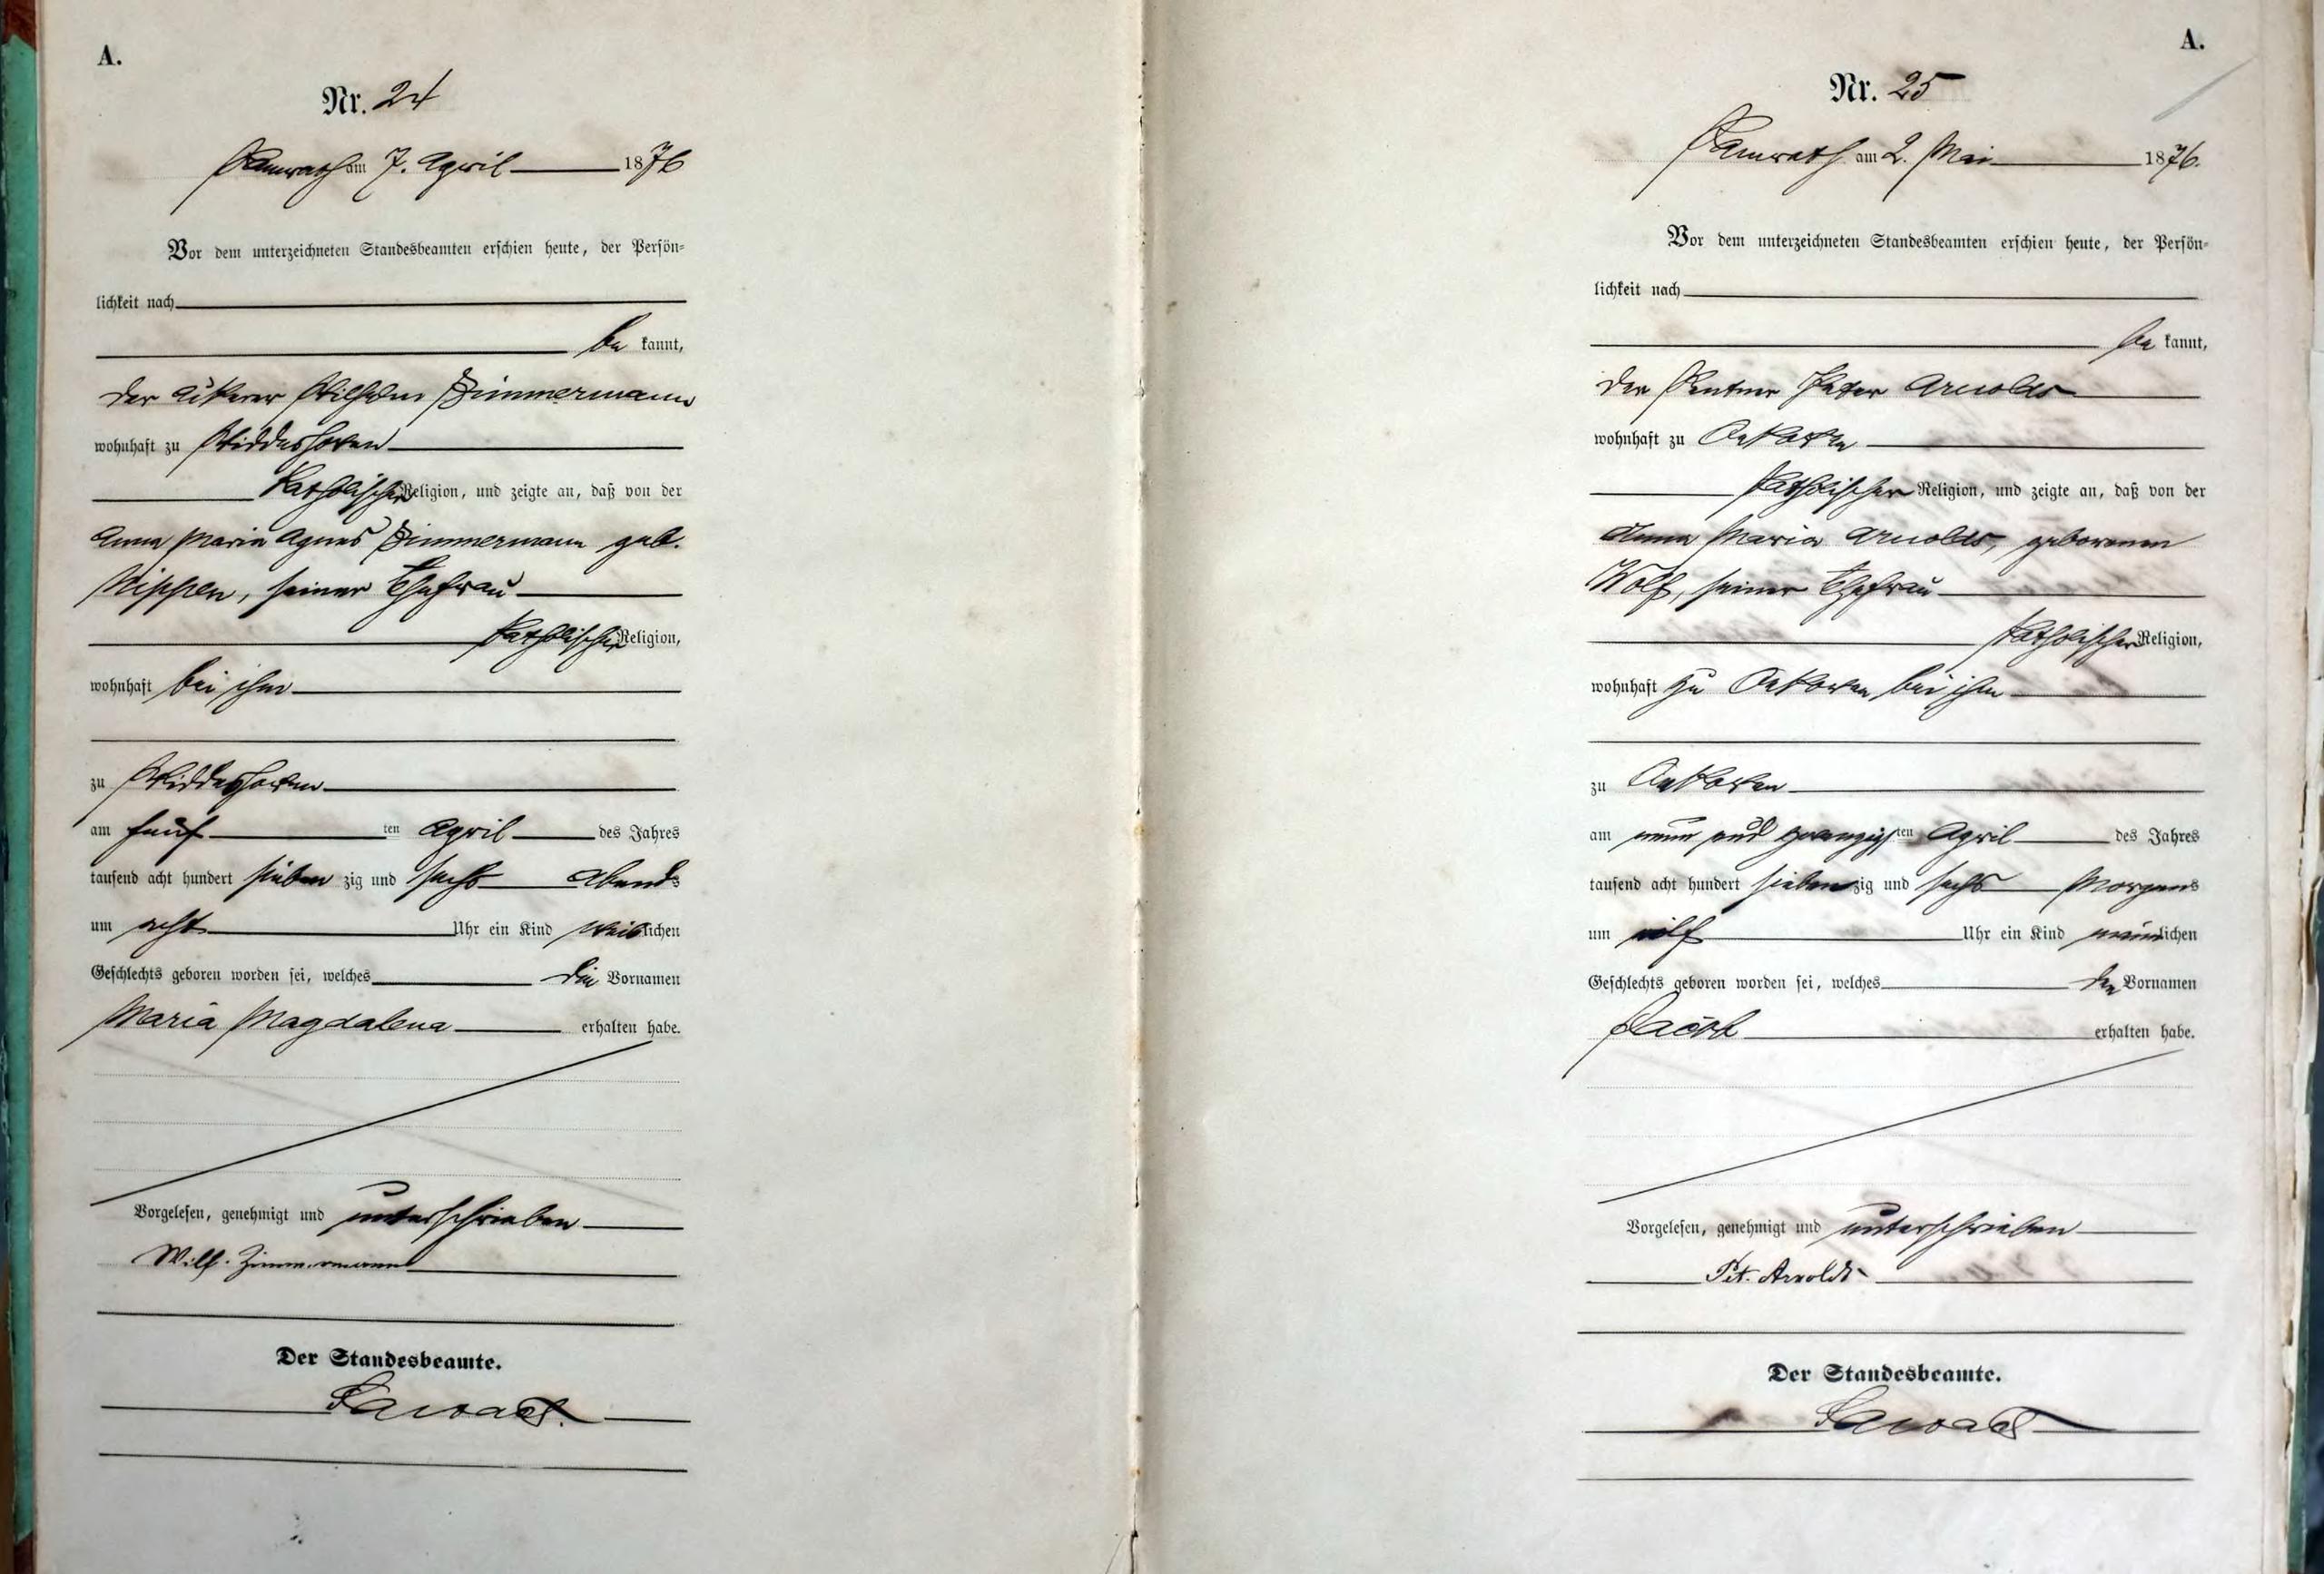 A.
Nr. 24
am 7. April 1876
Vor dem unterzeichneten Standesbeamten erschien heute, der Persön-
lichkeit nach
be kannt,
der Ackerer Wilhelm Zimmermann
wohnhaft zu Widdeshoven
katholischer Religion, und zeigte an, daß von der
Anna Maria Agnes Zimmermann geb.
seiner Ehefrau
katholischer Religion,
wohnhaft bei ihm
zu Widdeshoven
am fünf ten April des Jahres
tausend acht hundert sieben zig und sechs Abends
um acht Uhr ein Kind weiblichen
Geschlechts geboren worden sei, welches die Vornamen
Maria Magdalena erhalten habe.
Vorgelesen, genehmigt und unterschrieben
Wilh. Zimmermann
Der Standesbeamte.
A.
Nr. 25
am 2. Mai 1876.
Vor dem unterzeichneten Standesbeamten erschien heute, der Persön-
lichkeit nach
be kannt,
der Rentner Peter Arnolds
wohnhaft zu Oekoven
katholischer Religion, und zeigte an, daß von der
Anna Maria Arnolds, geborenen
Wolf, seiner Ehefrau
katholischer Religion,
wohnhaft zu Oekoven bei ihm
zu Oekoven
am neun und zwanzigsten April des Jahres
tausend acht hundert siebenzig und sechs Morgens
um Uhr ein Kind männlichen
Geschlechts geboren worden sei, welches den Vornamen
Jacob erhalten habe.
Vorgelesen, genehmigt und unterschrieben
Pet. Arnolds
Der Standesbeamte.